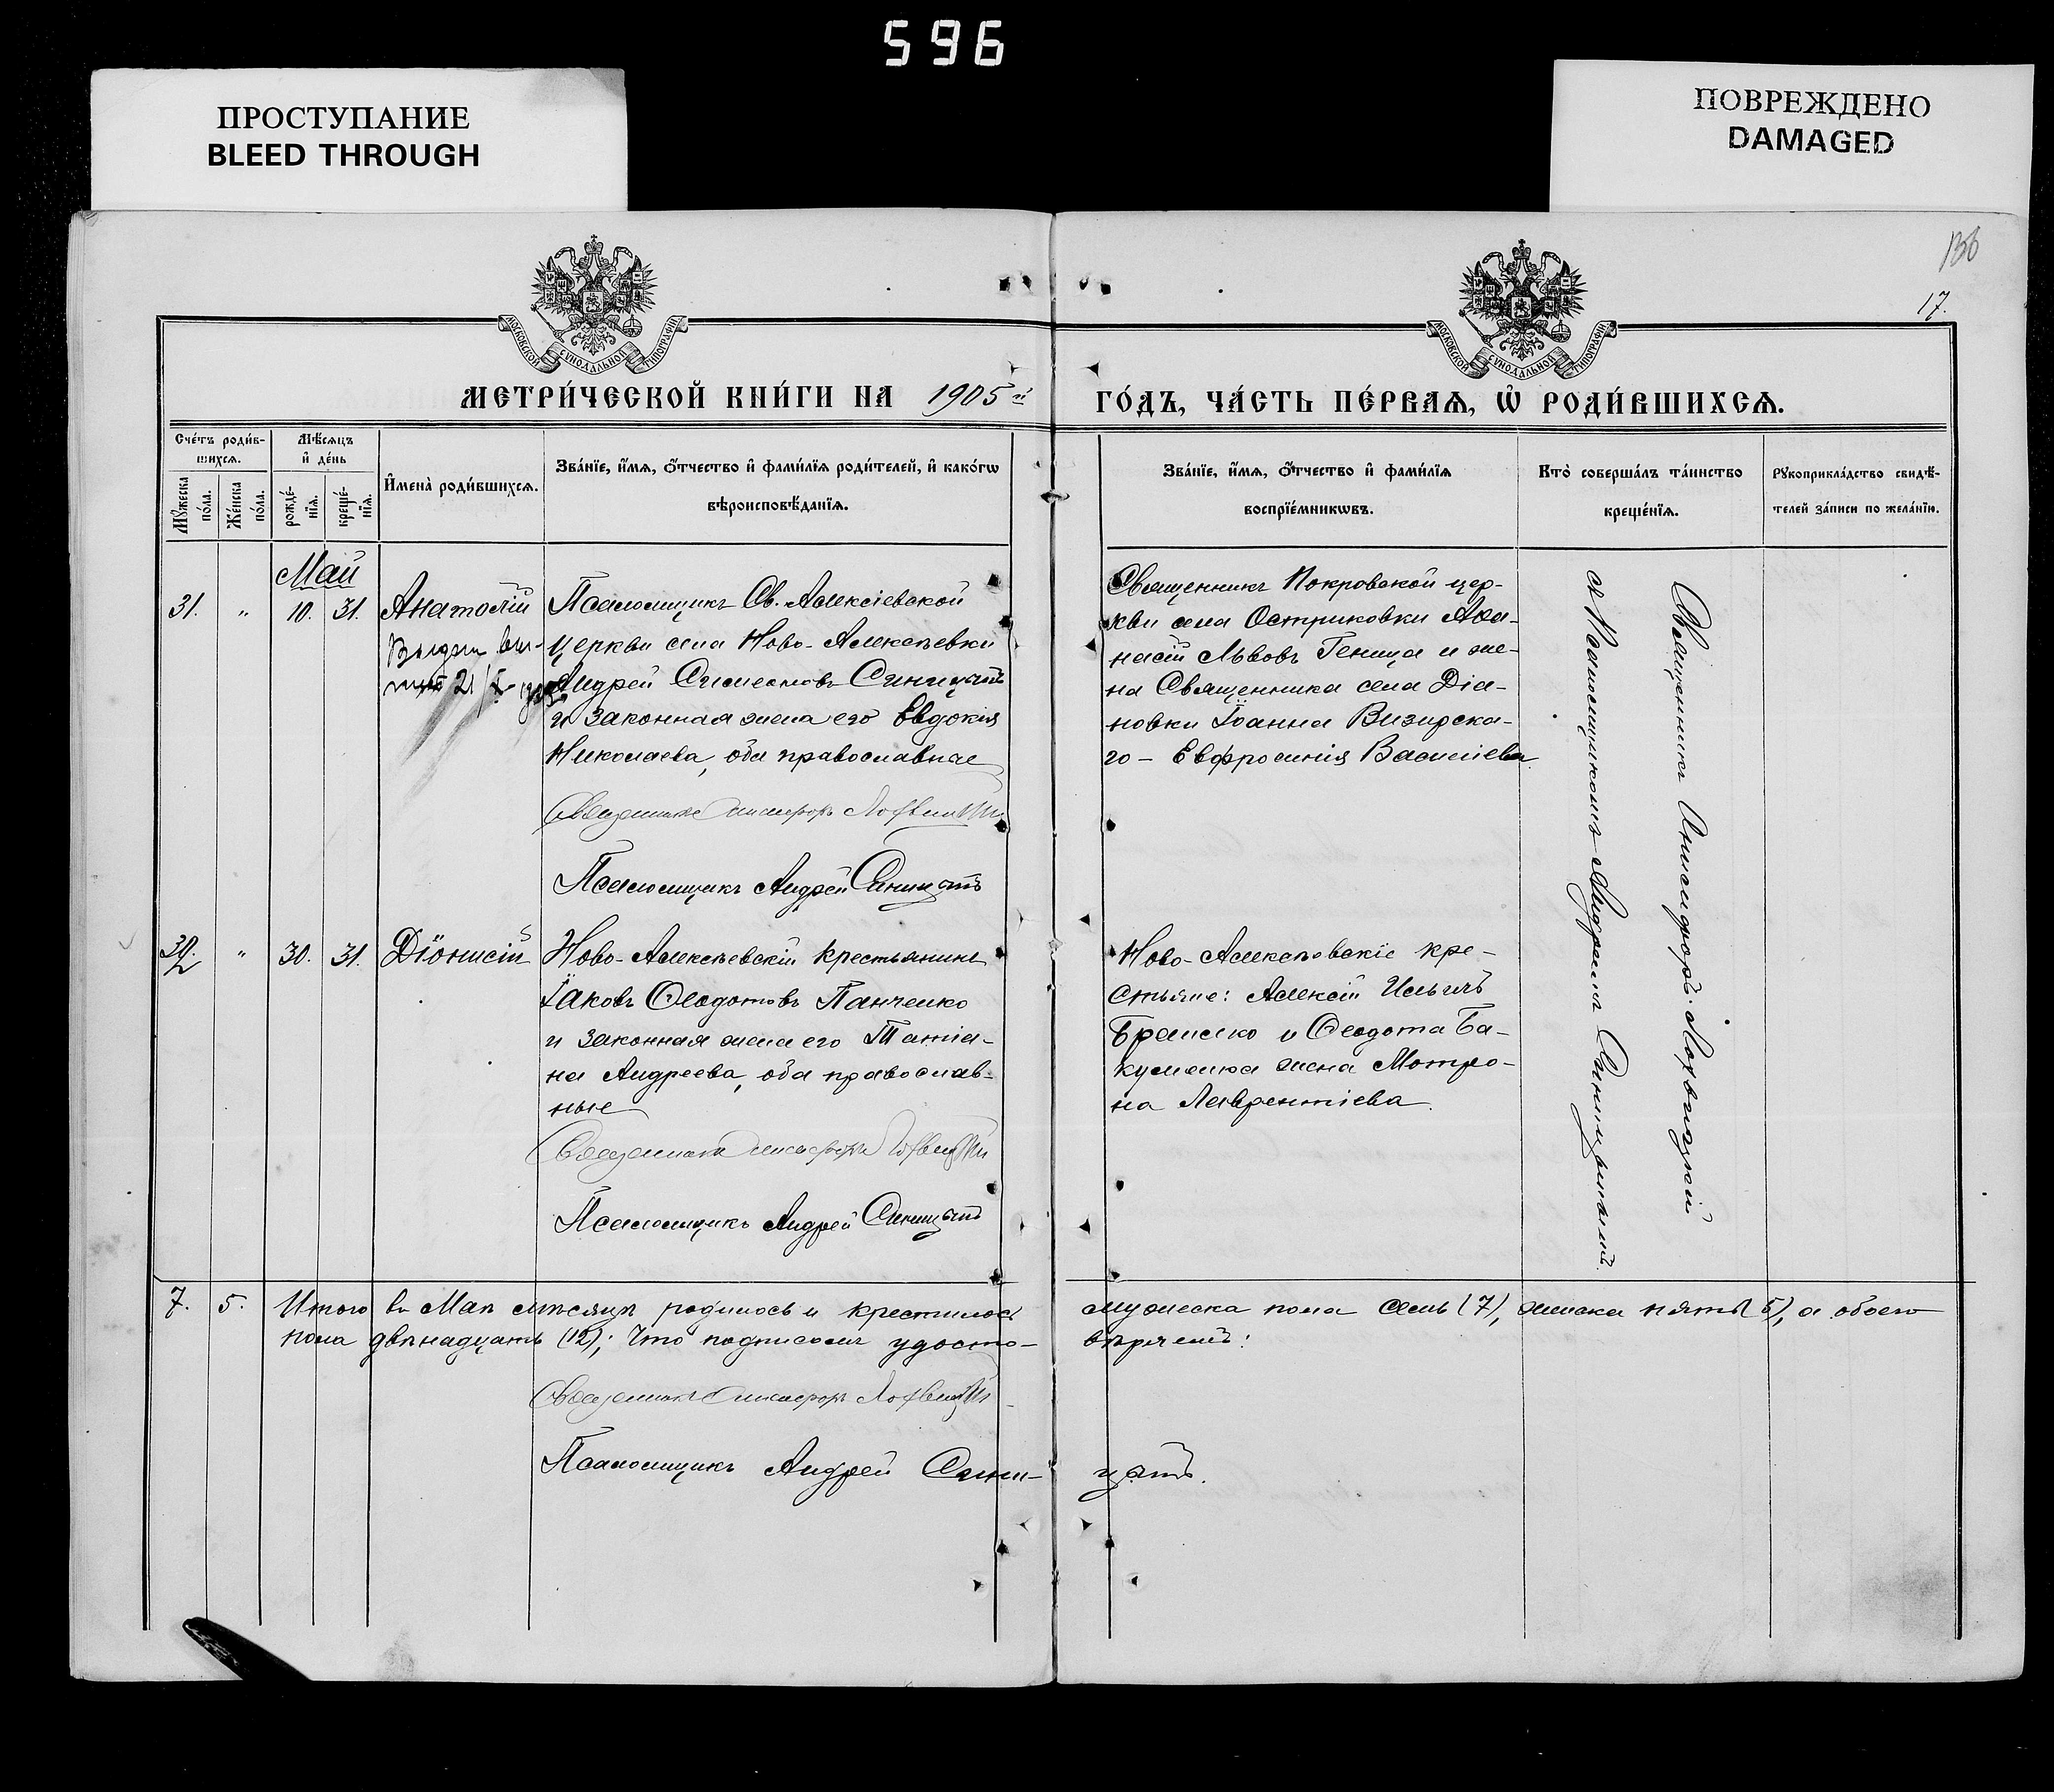 596
ПРОСТУПАНИЕ
BLEED THROUGH
ПОВРЕЖДЕНО
DAMAGED
136
17.
МОСКОВСКОЙ СѴНОДАЛЬНОЙ ТИПОГРАФІИ
МОСКОВСКОЙ СѴНОДАЛЬНОЙ ТИПОГРАФІИ
МЕТРИ́ЧЕСКОЙ КНИ́ГИ НА 1905й ГО́ДЪ, ЧА́СТЬ ПЕ́РВАѦ, Ѡ҆ РОДИ́ВШИХСѦ.
Сче́тъ роди́в-
шихсѧ.
Мꙋ́жеска по́ла.
Же́нска по́ла.
Мѣ́сѧцъ
и҆ де́нь
рожде́-
нїѧ.
креще́-
нїѧ.
И҆мена̀ роди́вшихсѧ.
Зва́нїе, и҆́мѧ, ѻ҆́тчество и҆ фами́лїѧ роди́телей, и҆ како́гѡ
вѣроисповѣ́данїѧ.
Зва́нїе, и҆́мѧ, ѻ҆́тчество и҆ фами́лїѧ
воспрїе́мникѡвъ.
Кто̀ соверша́лъ та́инство
креще́нїѧ.
Рꙋкоприкла́дство свидѣ́-
телей за́писи по жела́нїю.
Май
31. " 10. 31. Анатолій
Псаломщикъ Св. Алексіевской
церкви села Ново-Алексѣевки
Андрей Симеоновъ Синицкій
и законная жена его Евдокія
Николаева, оба православные
Священникъ Никифоръ Лохвицкій
Псаломщикъ Андрей Синицкій
Священникъ Покровской цер-
кви села Остриковки Аѳа-
насій Львовъ Геница и же-
на Священника села Діа-
новки Іоанна Визирска-
го - Евфросинія Василіева
Священникъ Никифоръ Лохвицкій
съ Псаломщикомъ Андреемъ Синицкимъ.
32. " 30. 31. Діонисій
Ново-Алексѣевскій крестьянинъ
Іаковъ Ѳеодотовъ Панченко
и законная жена его Татіа-
на Андреева, оба православ-
ные
Священникъ Никифоръ Лохвицкій
Псаломщикъ Андрей Синицкій
Ново-Алексѣевскіе кре-
стьяне: Алексій Ильичъ
и Ѳеодота Ба-
куменка жена Мотро-
на Лаврентіева.
7. 5. Итого въ Маѣ мѣсяцѣ родилось и крестилось мужеска пола семь (7), женска пять (5), а обоего
пола двѣнадцать (12); Что подписомъ удосто- вѣряемъ:
Священникъ Никифоръ Лохвицкій
Псаломщикъ Андрей Сини- цкій.